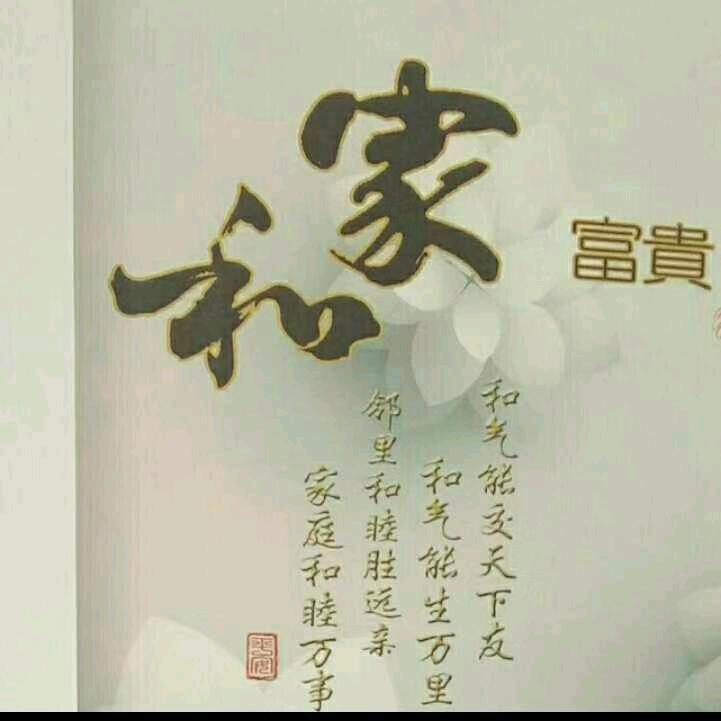 家和
富貴
和气能交天下友
和气能生万里
邻里和睦胜远亲
家庭和睦万事